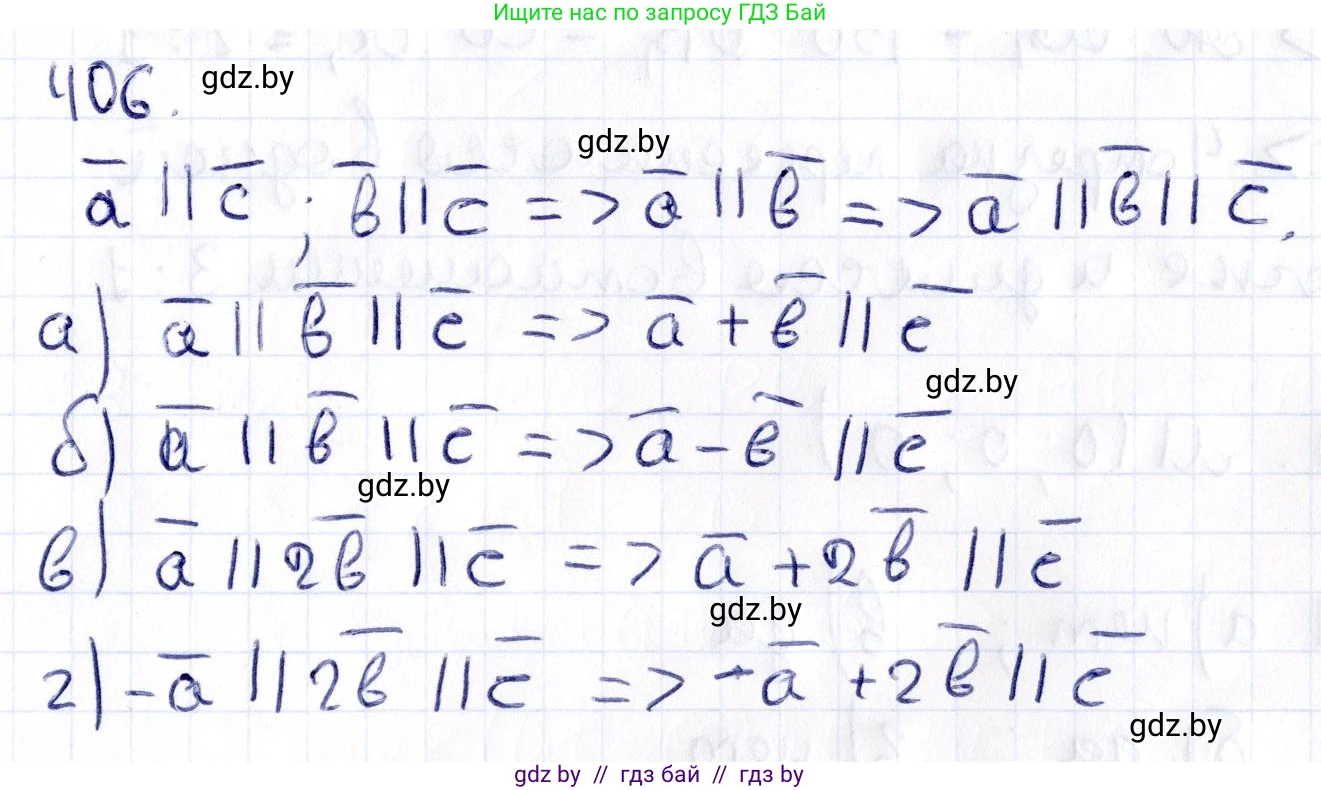 Ищите нас по запросу ГДЗ Бай
406. gdz.by
gdz.by
a̅ || c̅ ; b̅ || c̅ => a̅ || b̅ => a̅ || b̅ || c̅.
а) a̅ || b̅ || c̅ => a̅ + b̅ || c̅
gdz.by
б) a̅ || b̅ || c̅ => a̅ - b̅ || c̅
gdz.by
в) a̅ || 2b̅ || c̅ => a̅ + 2b̅ || c̅
gdz.by
г) -a̅ || 2b̅ || c̅ => -a̅ + 2b̅ || c̅
gdz.by
gdz by // гдз бай // гдз by